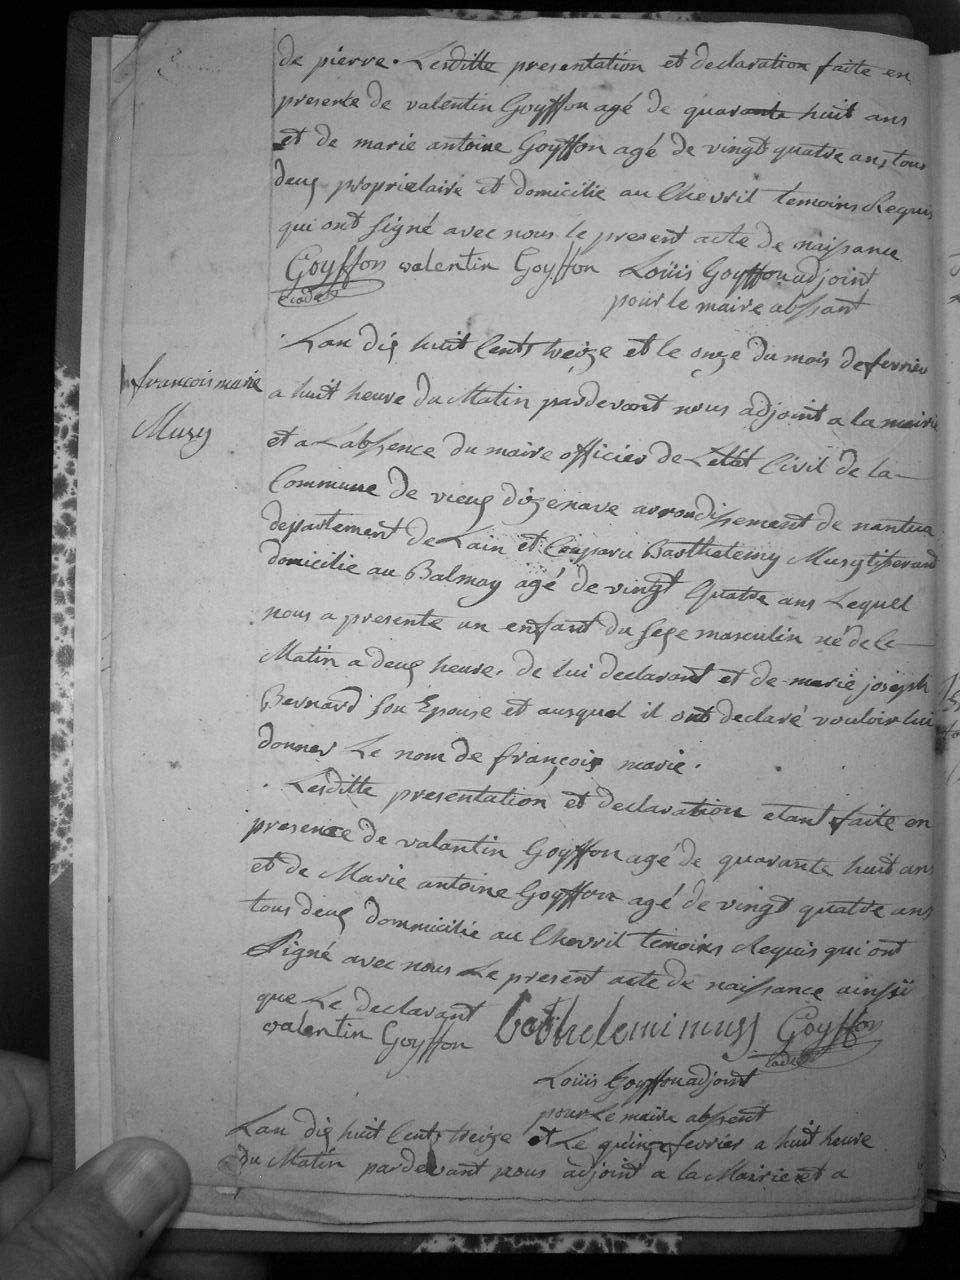 de pierre. Lesditte presentation et declaration faite en
presence de valentin Goyffon agé de quarante huit ans
et de marie antoine Goyffon agé de vingt quatre ans tous
deux proprietaire et domicilie au Chevril temoins Requis
qui ont signé avec nous le present acte de naissance
Goyffon valentin Goyffon Loüis Goyffon adjoint
cadet pour le maire absant
Lan dix huit Cents treize et le onze du mois de fevrier
françois marie
Musy
a huit heure du Matin pardevant nous adjoint a la mairie
et a Labsence du maire officier de Letat Civil de la
Commune de vieux dizenave arrondissement de nantua
departement de Lain et Comparu Barthelemy Musy tisserand
domicilie au Balmay agé de vingt Quatre ans Lequel
nous a presente un enfant du sexe masculin né de le
Matin a deux heure, de lui declarant et de marie joseph
Bernard son Epouse et auxquel il ont declaré vouloir lui
donner Le nom de françois marie.
Lesditte presentation et declaration etant faite en
presence de valantin Goyffon agé de quarante huit ans
et de Marie antoine Goyffon agé de vingt quatre ans
tous deux dommicilie au Chevril temoins Requis qui ont
signé avec nous Le present acte de naissance ainssi
que Le declarant
valentin Goyffon bathelemi musy Goyffon
cadet
Loüis Goyffon adjoint
pour Le maire absent
Lan dix huit Cents treize et Le quinze fevrier a huit heure
du Matin pardevant nous adjoint a la Mairie et a